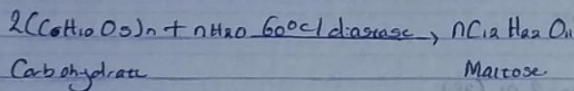 2(C6H10O5)n + nH2O 60°C/diastase → nC12H22O11
Carbohydrate Maltose